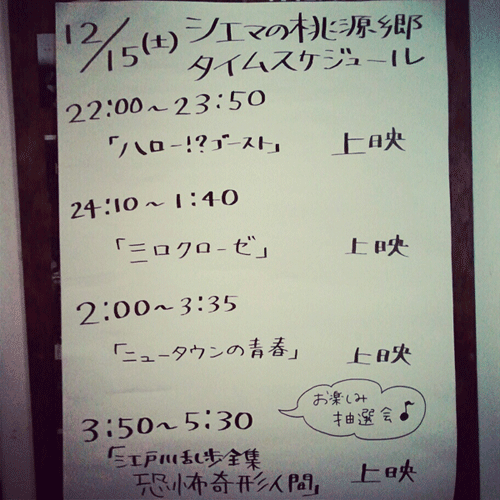 12/15(土) シエマの桃源郷
タイムスケジュール
22:00〜23:50
「ハロー!?ゴースト」 上映
24:10〜1:40
「ミロクローゼ」 上映
2:00〜3:35
「ニュータウンの青春」 上映
お楽しみ
抽選会♪
3:50〜5:30
「江戸川乱歩全集
恐怖奇形人間」 上映